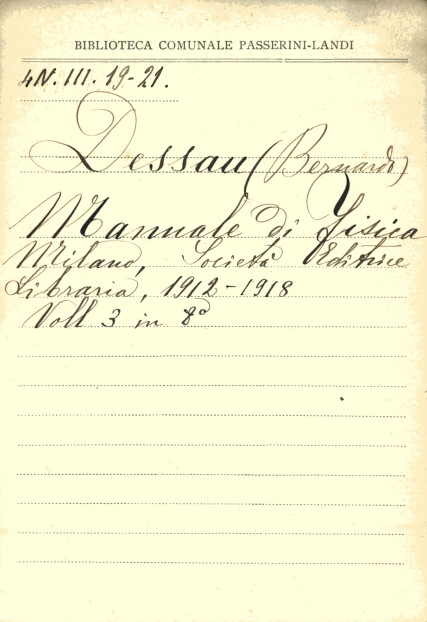 BIBLIOTECA COMUNALE PASSERINI-LANDI
4N. III. 19-21.
Dessau (Bernardo)
Manuale di Fisica
Milano, Società Editrice
Libraria, 1912-1918
Voll 3 in 8º